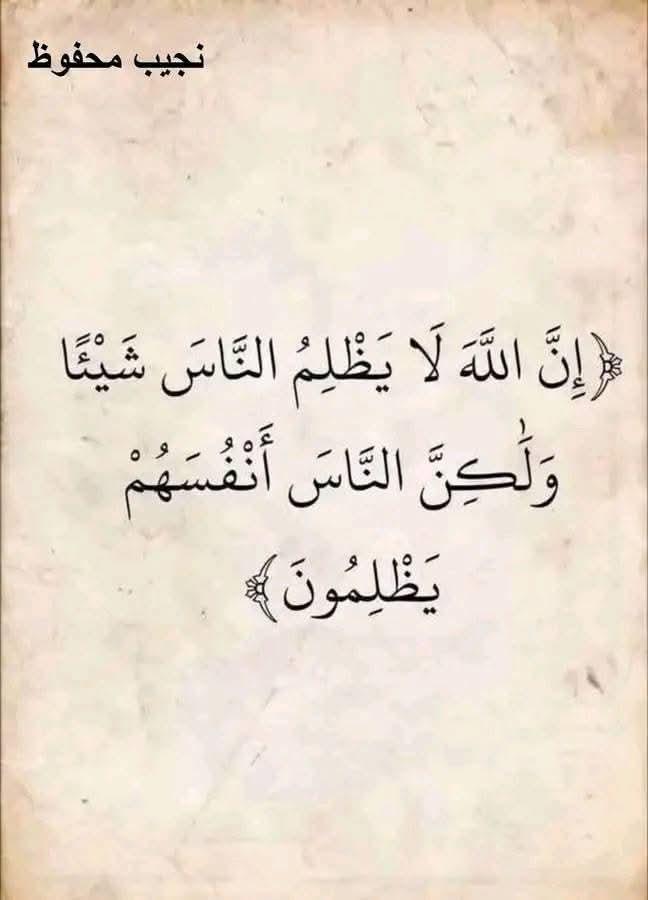 نجيب محفوظ
﴿إِنَّ اللَّهَ لَا يَظْلِمُ النَّاسَ شَيْئًا
وَلَٰكِنَّ النَّاسَ أَنْفُسَهُمْ
يَظْلِمُونَ﴾